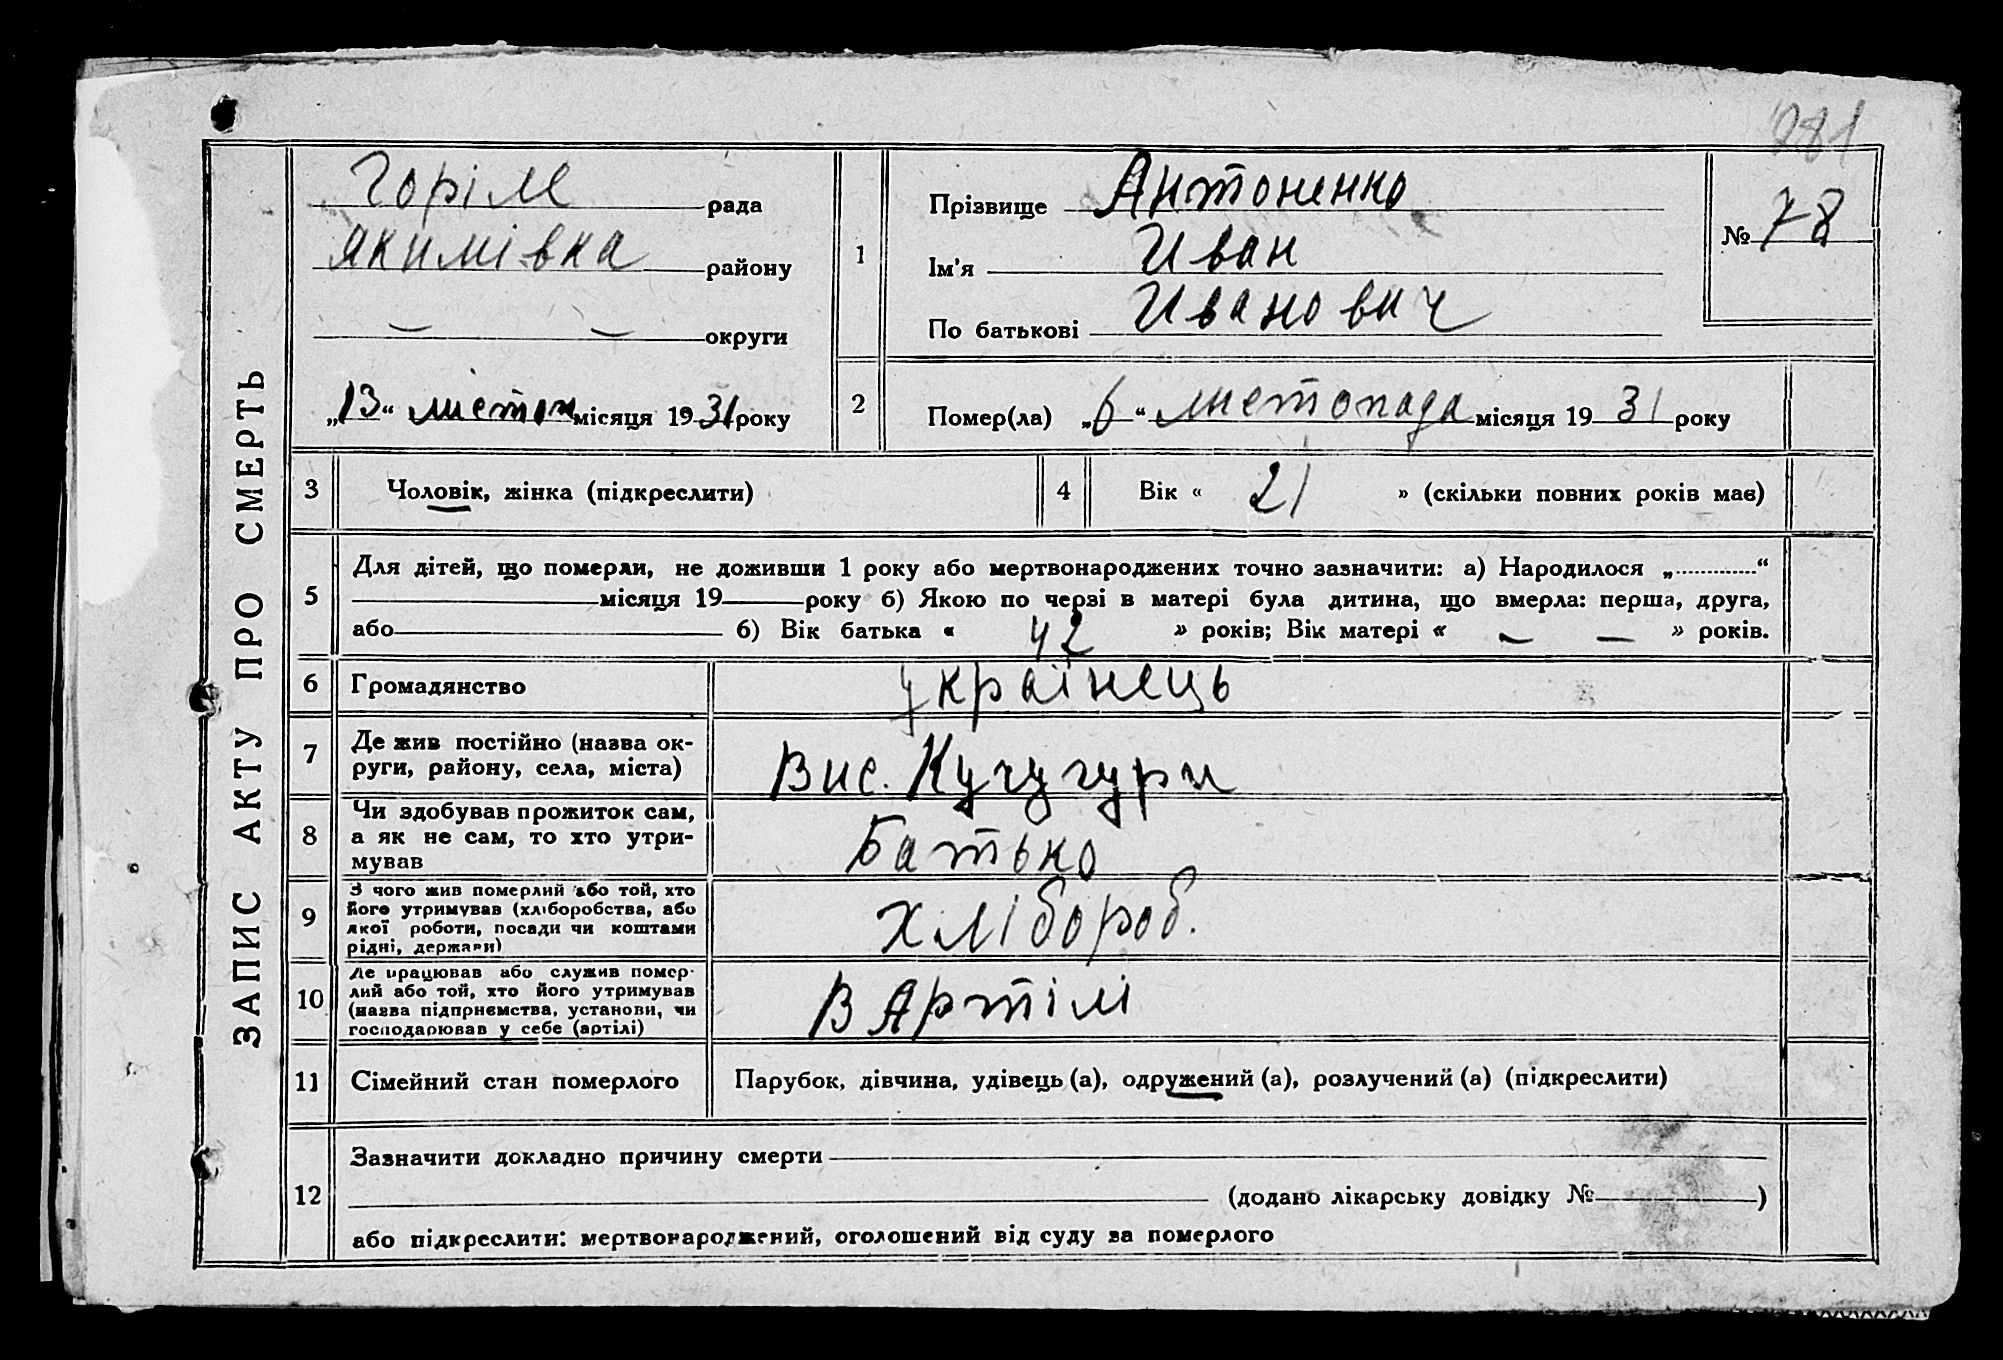 281
ЗАПИС АКТУ ПРО СМЕРТЬ
Горіле рада
Якимівка району
— — округи
„13“ листоп місяця 1931 року
1
Прізвище Антоненко
Ім’я Иван
По батькові Иванович
№ 78
2
Помер(ла) „6“ листопада місяця 1931 року
3 Чоловік, жінка (підкреслити)
4 Вік « 21 » (скільки повних років має)
5
Для дітей, що померли, не доживши 1 року або мертвонароджених точно зазначити: а) Народилося „.............“
місяця 19 року б) Якою по черзі в матері була дитина, що вмерла: перша, друга,
або б) Вік батька « 42 » років; Вік матері « — — » років.
6 Громадянство Українець
7
Де жив постійно (назва ок-
руги, району, села, міста) Вис. Кучугури
8
Чи здобував прожиток сам,
а як не сам, то хто утри-
мував Батько
9
З чого жив померлий або той, хто
його утримував (хліборобства, або
якої роботи, посади чи коштами
рідні, держави) Хлібороб.
10
Де працював або служив помер-
лий або той, хто його утримував
(назва підприємства, установи, чи
господарював у себе (артілі) В Артілі
11 Сімейний стан померлого Парубок, дівчина, удівець (а), одружений (а), розлучений (а) (підкреслити)
12
Зазначити докладно причину смерти
(додано лікарську довідку № )
або підкреслити: мертвонароджений, оголошений від суду за померлого